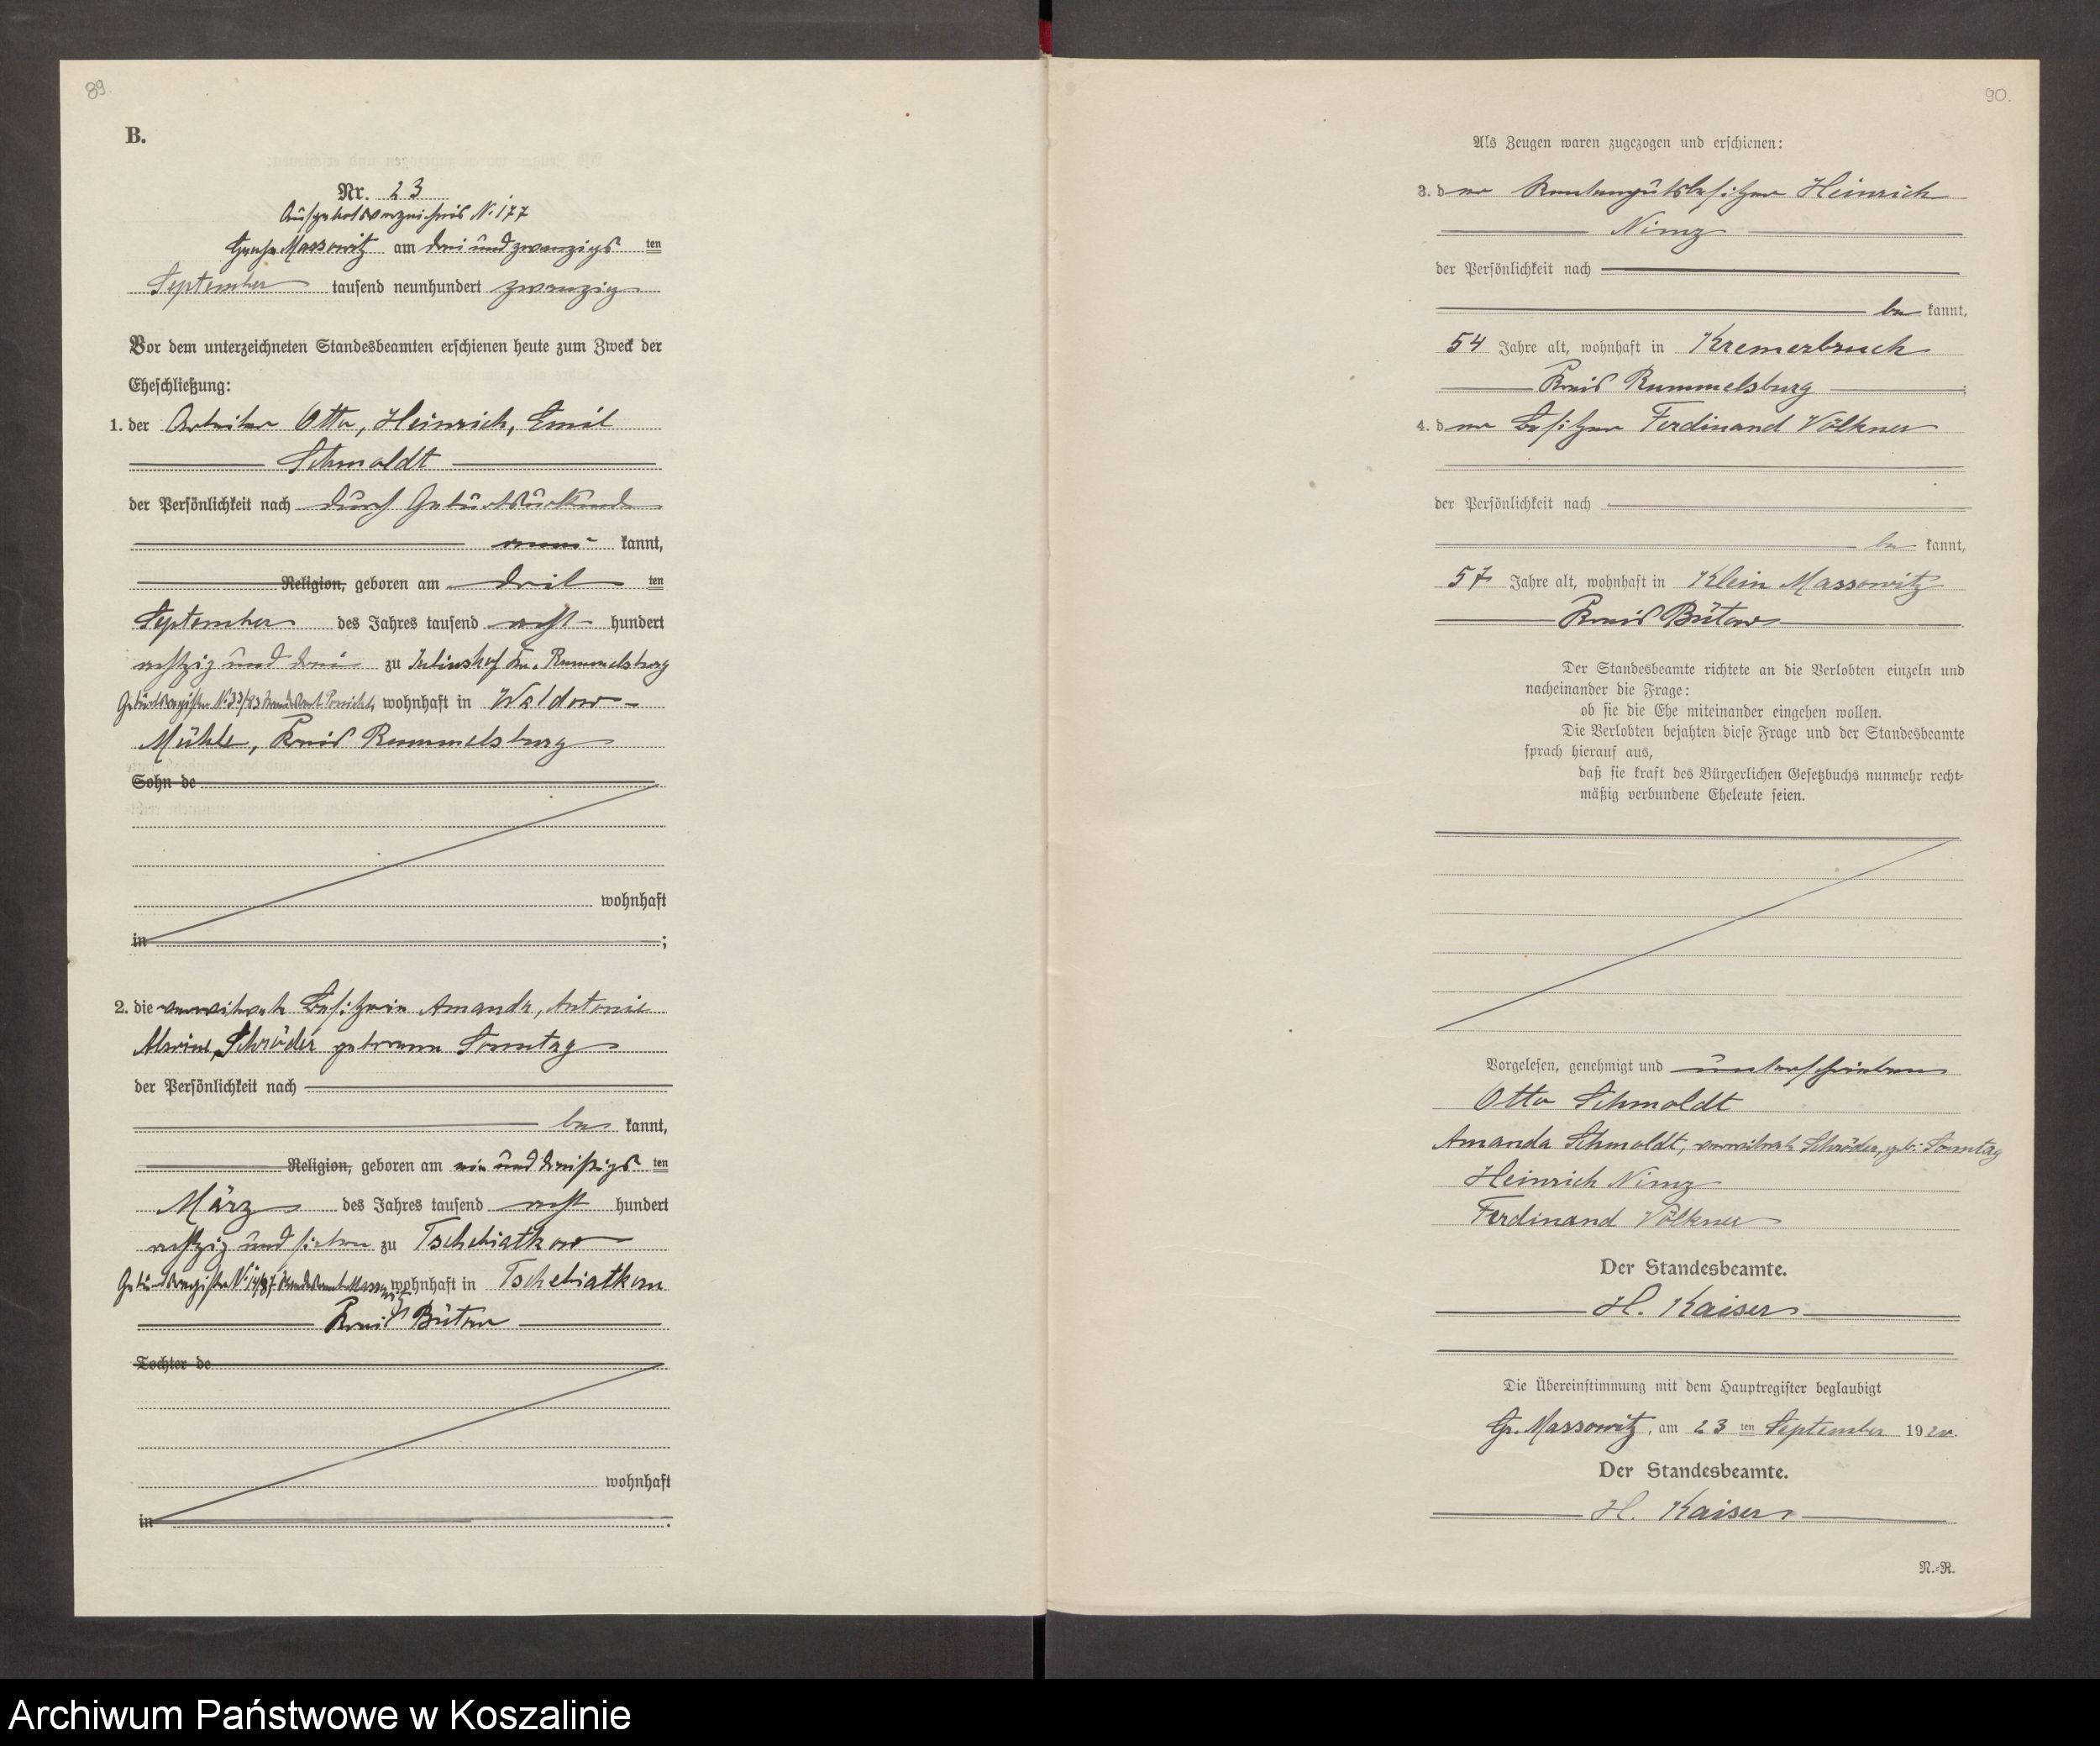 89.
B.
Nr. 23
Aufgebotsverzeichnis N. 177
Groß Massowitz am drei und zwanzigs ten
September tausend neunhundert zwanzig
Vor dem unterzeichneten Standesbeamten erschienen heute zum Zweck der
Eheschließung:
1. der Arbeiter Otto, Heinrich, Emil
Schmoldt
der Persönlichkeit nach durch Geburtsurkunde
aner kannt,
Religion, geboren am drit ten
September des Jahres tausend acht hundert
achtzig und drei zu Juliushof Kr. Rummelsburg
Geburtsregister N. 33/83 Standesamt wohnhaft in Waldow-
Mühle, Kreis Rummelsburg
Sohn de
wohnhaft
in ;
2. die verwitwete Besitzerin Amanda, Antonie
Schröder geborene Sonntag
der Persönlichkeit nach
be kannt,
Religion, geboren am ein und dreißigs ten
März des Jahres tausend acht hundert
achtzig und sieben zu Tschebiatkow
Geburtsregister N. 14/87 Standesamt Massowitz wohnhaft in Tschebiatkow
Kreis Bütow
Tochter de
wohnhaft
in .
90.
Als Zeugen waren zugezogen und erschienen:
3. d er Rentengutsbesitzer Heinrich
Nimz
der Persönlichkeit nach
be kannt,
54 Jahre alt, wohnhaft in Kremerbruch
Kreis Rummelsburg ;
4. d er Besitzer Ferdinand Völkner
der Persönlichkeit nach
be kannt,
57 Jahre alt, wohnhaft in Klein Massowitz
Kreis Bütow .
Der Standesbeamte richtete an die Verlobten einzeln und
nacheinander die Frage:
ob sie die Ehe miteinander eingehen wollen.
Die Verlobten bejahten diese Frage und der Standesbeamte
sprach hierauf aus,
daß sie kraft des Bürgerlichen Gesetzbuchs nunmehr recht-
mäßig verbundene Eheleute seien.
Vorgelesen, genehmigt und unterschrieben
Otto Schmoldt
Amanda Schmoldt, verwitwete Schröder, geb. Sonntag
Heinrich Nimz
Ferdinand Völkner
Der Standesbeamte.
H. Kaiser
Die Übereinstimmung mit dem Hauptregister beglaubigt
Gr. Massowitz, am 23 ten September 1920.
Der Standesbeamte.
H. Kaiser
N.-R.
Archiwum Państwowe w Koszalinie